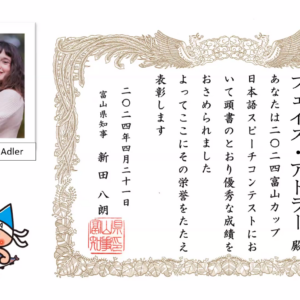 Adler
フェイス・アドラー 殿
あなたは二〇二四富山カップ
日本語スピーチコンテストにお
いて頭書のとおり優秀な成績を
おさめられました
よってここにその栄誉をたたえ
表彰します
二〇二四年四月二十一日
富山県知事 新田八朗
富山県知事印